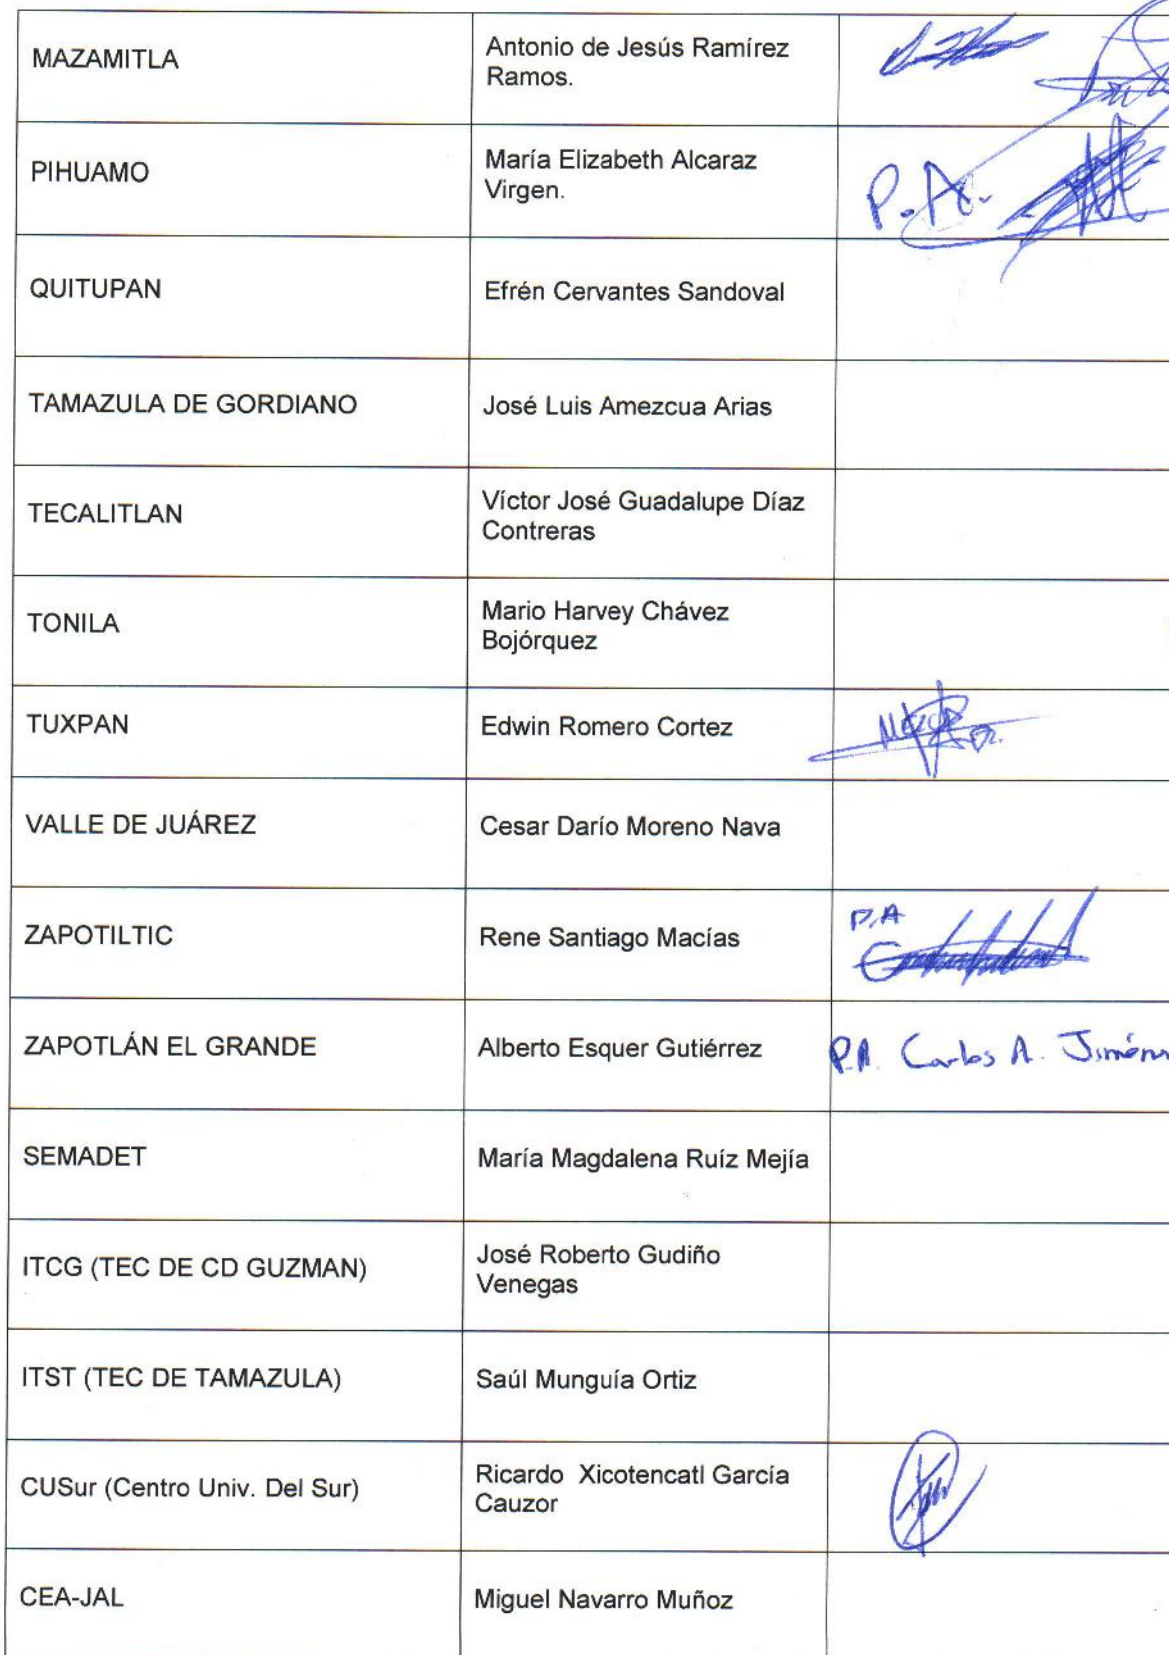 MAZAMITLA
Antonio de Jesús Ramírez
Ramos.
PIHUAMO
María Elizabeth Alcaraz
Virgen.
P.A.
QUITUPAN
Efrén Cervantes Sandoval
TAMAZULA DE GORDIANO
José Luis Amezcua Arias
TECALITLAN
Víctor José Guadalupe Díaz
Contreras
TONILA
Mario Harvey Chávez
Bojórquez
TUXPAN
Edwin Romero Cortez
VALLE DE JUÁREZ
Cesar Darío Moreno Nava
ZAPOTILTIC
Rene Santiago Macías
P.A
ZAPOTLÁN EL GRANDE
Alberto Esquer Gutiérrez
P.A. Carlos A.
SEMADET
María Magdalena Ruíz Mejía
ITCG (TEC DE CD GUZMAN)
José Roberto Gudiño
Venegas
ITST (TEC DE TAMAZULA)
Saúl Munguía Ortiz
CUSur (Centro Univ. Del Sur)
Ricardo Xicotencatl García
Cauzor
CEA-JAL
Miguel Navarro Muñoz